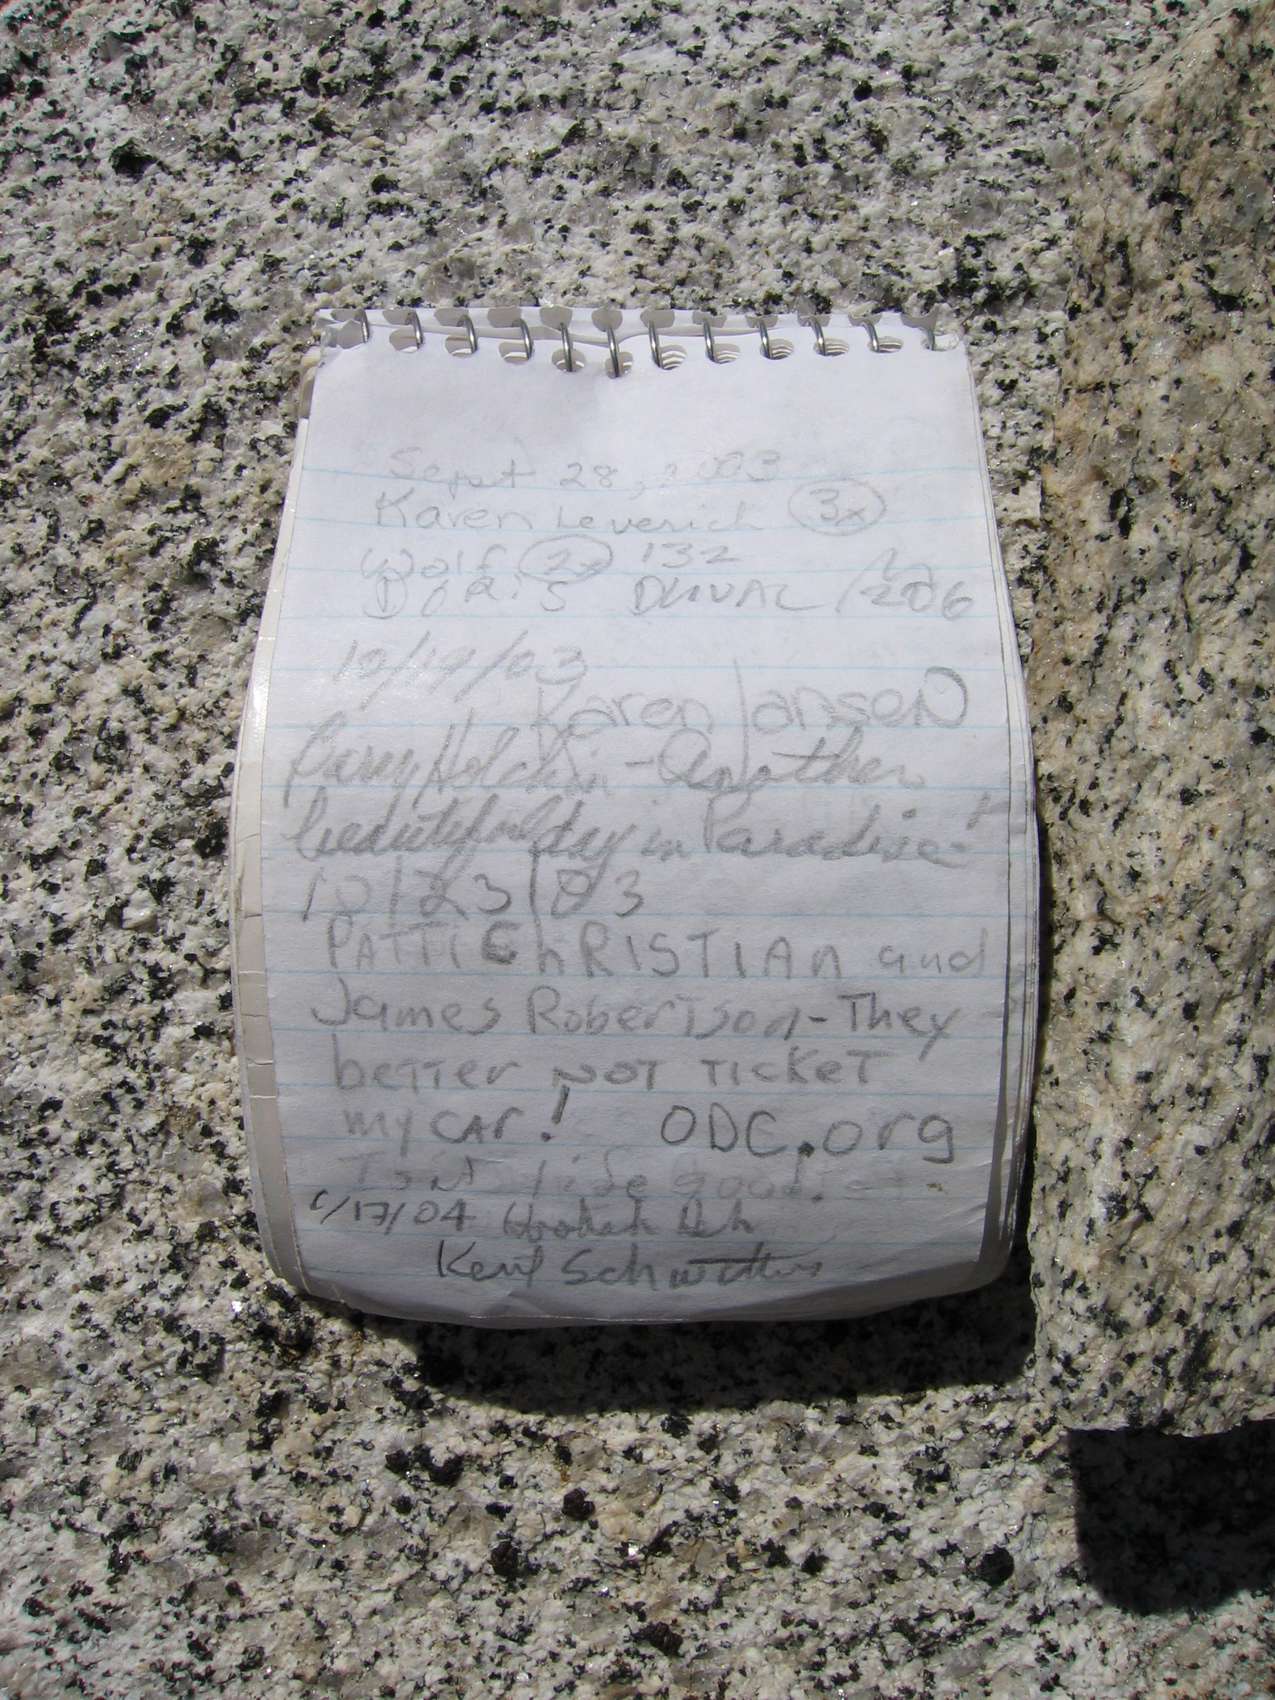 Sept 28, 2003
Karen Leverich 3x
Wolf 2x 132
DORiS DUVAL /206
10/19/03
Karen Jansen
- Another
beautiful day in Paradise!
10/23/03
PATTI ChRISTIAN and
James Robertson - They
better NOT TICKET
my CAR! ODC.org
Isn't life good!
/17/04
Schwitters